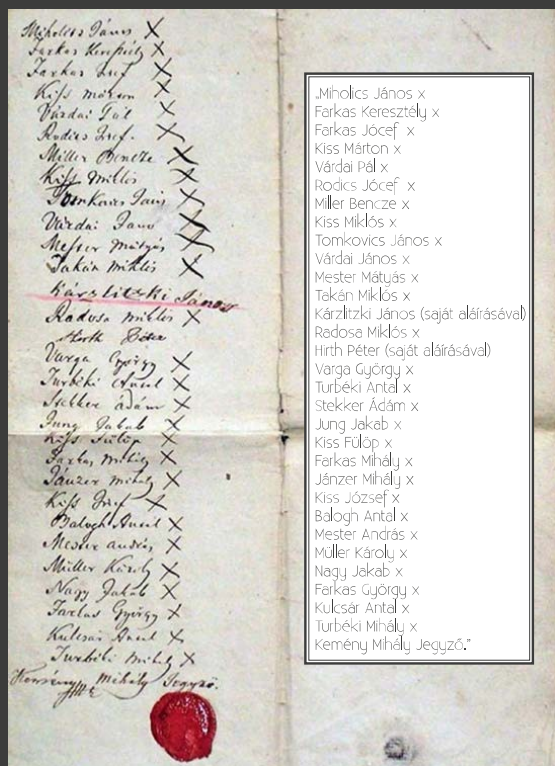 Miholics János X
Farkas Keresztély X
Farkas Josef X
Kiss márton X
Várdai Pál X
Rodics Josef. X
Miller Bencze X
Kiss Miklós X
Tomkovics János X
Várdai Janos X
Mester mátyás X
Takán miklós X
Kárzlitzki János
Radosa miklós X
Hirth Péter
Varga György X
Turbéki Antal X
Stekker ádám X
Jung Jakab X
Kiss Fülöp X
Farkas Mihály X
Jánzer mihály X
Kiss Josef X
Balogh Antal X
Mester andrás X
Müller Károly X
Nagy Jakab X
Farkas György X
Kulcsár Antal X
Turbéki Mihály X
Kemény Mihály Jegyző.
„Miholics János x
Farkas Keresztély x
Farkas Jócef x
Kiss Márton x
Várdai Pál x
Rodics Jócef x
Miller Bencze x
Kiss Miklós x
Tomkovics János x
Várdai János x
Mester Mátyás x
Takán Miklós x
Kárzlitzki János (saját aláírásával)
Radosa Miklós x
Hirth Péter (saját aláírásával)
Varga György x
Turbéki Antal x
Stekker Ádám x
Jung Jakab x
Kiss Fülöp x
Farkas Mihály x
Jánzer Mihály x
Kiss József x
Balogh Antal x
Mester András x
Müller Károly x
Nagy Jakab x
Farkas György x
Kulcsár Antal x
Turbéki Mihály x
Kemény Mihály Jegyző.”